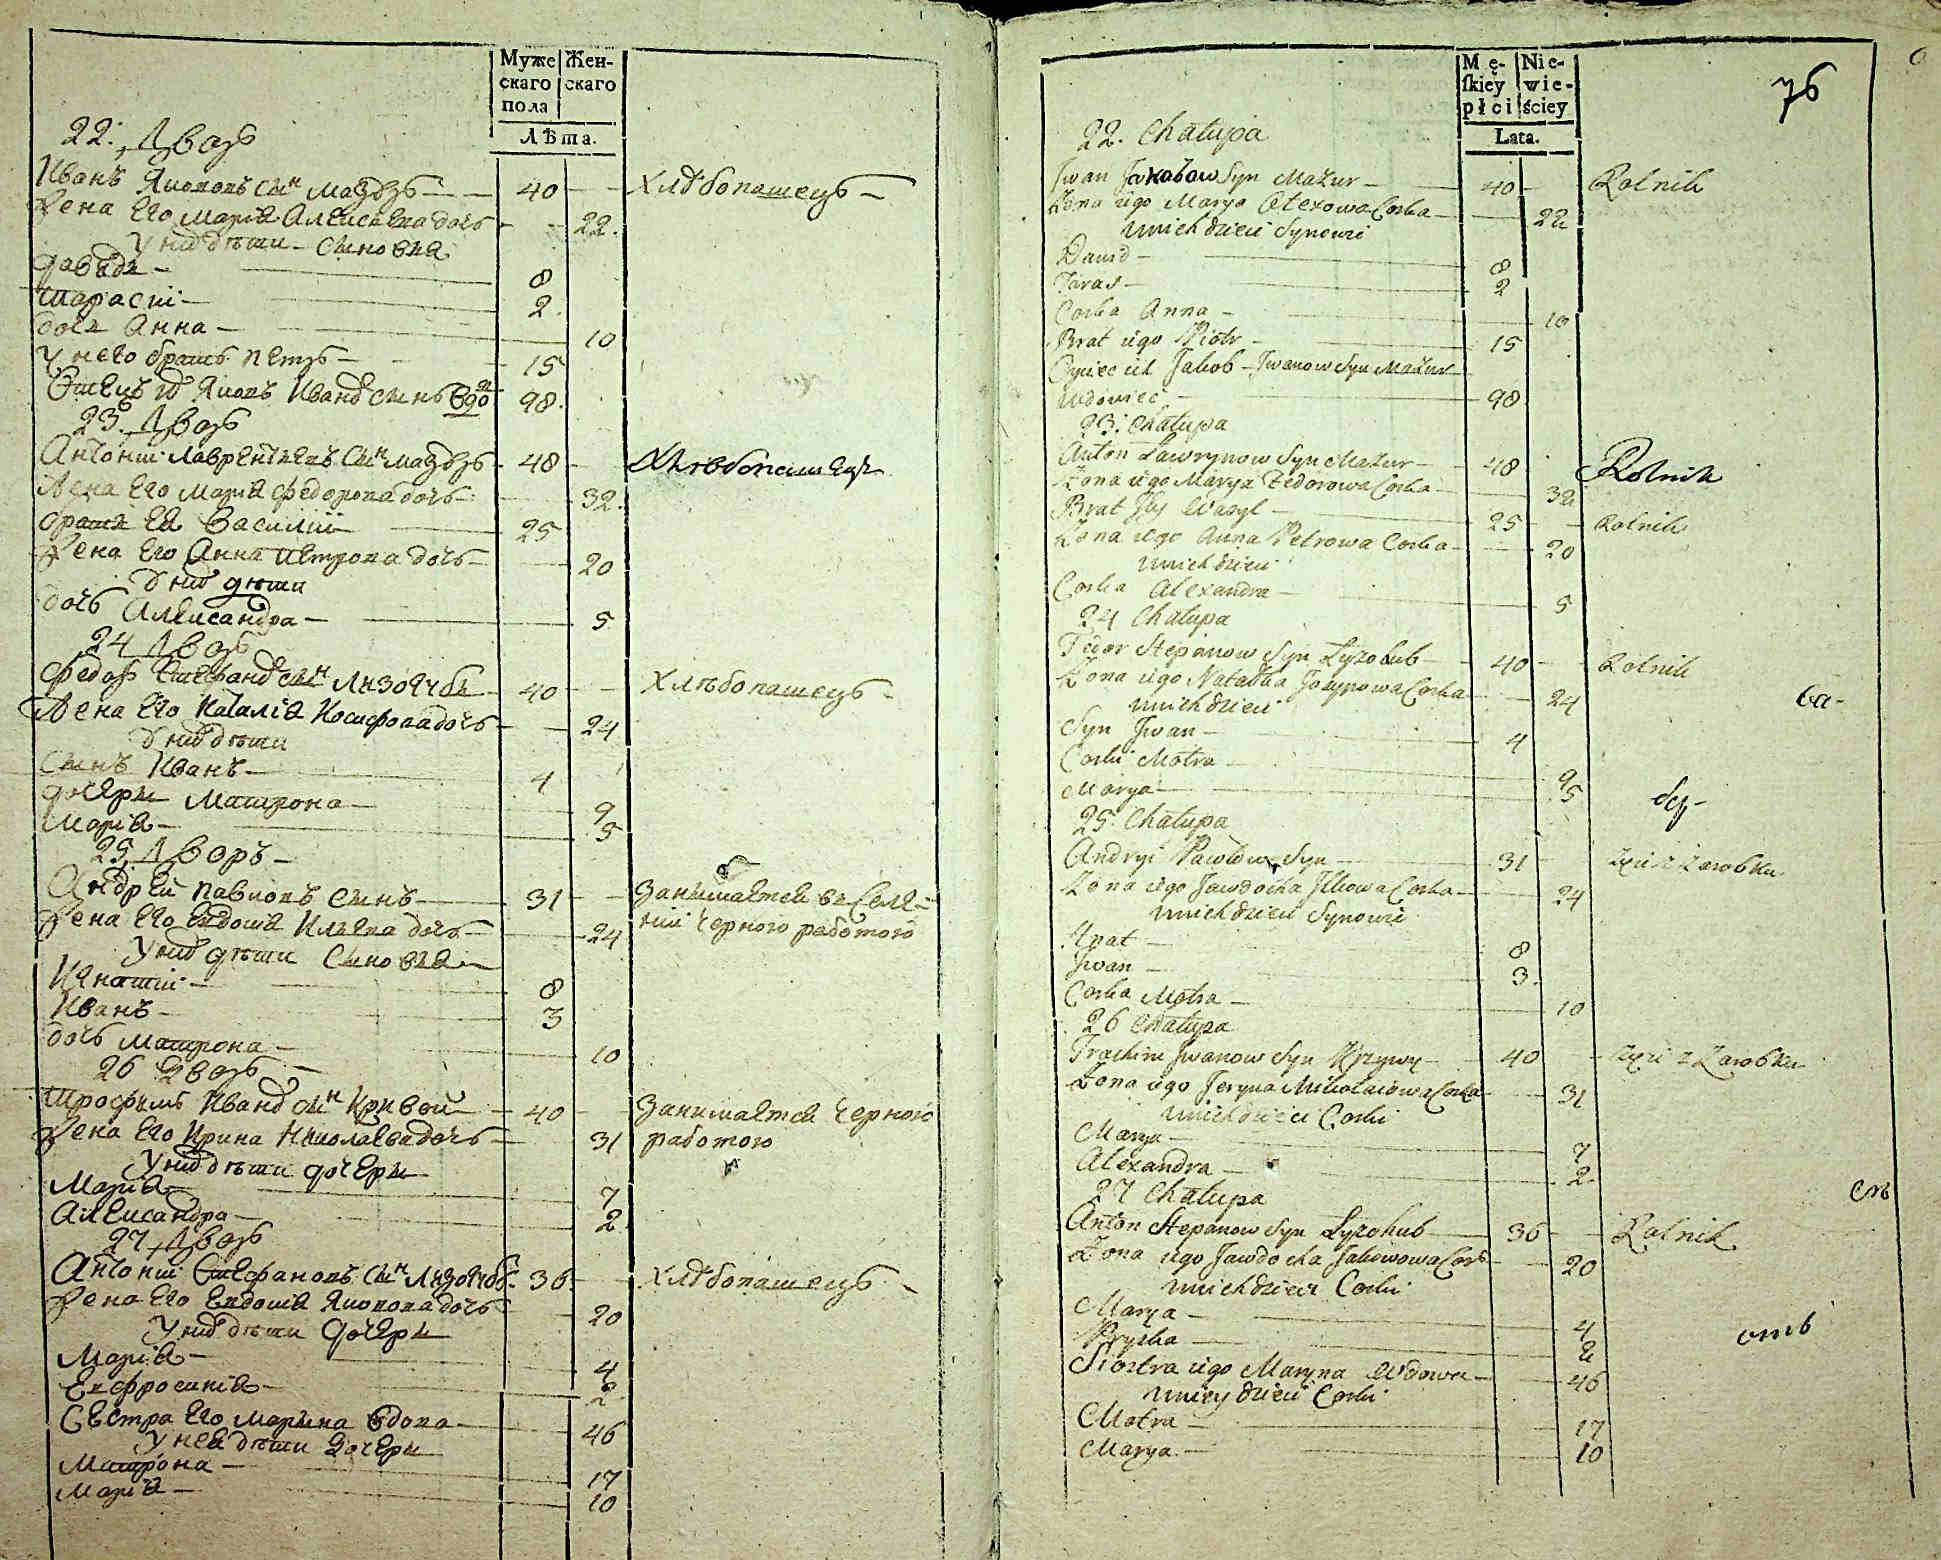 Муже
скаго
пола
Жен-
скаго
Лѣта.
22. Дворъ
Иванъ Якововъ сынъ Мазуръ — 40 — Хлѣбопашецъ —
Жена Его Марiя Алексѣева дочь — 22.
У нихъ дѣти Сыновья
Давидъ — 8
Тарасiй — 2.
дочь Анна — 10
У него братъ Петръ — 15
Отецъ ихъ Яковъ Ивановъ сынъ вдо 98.
23. Дворъ
Антонiй Лаврентьевъ Сынъ Мазуръ — 48 — Хлѣбопашецъ
Жена Его Марiя Федорова дочь — 32.
братъ Ея Василiй — 25
Жена Его Анна Петрова дочь — 20
У нихъ дѣти
дочь Александра — 5
24 Дворъ
Федоръ Стефановъ сынъ Лизогубъ — 40 — Хлѣбопашецъ —
Жена Его Наталiя Иосифова дочь — 24
У нихъ дѣти
Сынъ Иванъ — 4
дочери Матрона — 9
Марiя — 5
25 Дворъ —
Андрей Павловъ Сынъ — 31 — Занимается въ Селе-
нiи черною работою
Жена Его Евдокiя Ильева дочь — 24
У нихъ дѣти Сыновья —
Игнатiй — 8
Иванъ — 3
дочь Матрона — 10
26 Дворъ —
Трофимъ Ивановъ сынъ Кривой — 40 — Занимается черною
работою
Жена Его Ирина Николаева дочь — 31
У нихъ дѣти дочери
Марiя — 7
Александра — 2.
27 Дворъ
Антонiй Стефановъ Сынъ Лизогубъ. 36. Хлѣбопашецъ —
Жена Его Евдокiя Яковова дочь — 20
У нихъ дѣти дочери
Марiя — 4
Евфросинiя — 2
Сестра Его Марина вдова — 46
У нея дѣти дочери
Матрона — 17
Марiя — 10
76
Mę-
ſkiey
płci
Nie-
wie-
ściey
Lata.
22. Chałupa
Jwan Jakobow Syn Mazur — 40 — Rolnik
Zona iego Marya Olexowa Corka — 22
unich dzieci Synowi
Dawid — 8
Taras — 2
Corka Anna — 10
Brat iego Piotr — 15
Oyciec ich Jakob Jwanow Syn Mazur
wdowiec — 98
23. Chałupa
Anton Ławrynow Syn Mazur — 48 — Rolnik
Zona iego Marya Fedorowa Corka — 32
Brat Jey Wasyl — 25 — Rolnik
Zona iego Anna Petrowa Corka — 20
unich dzieci
Corka Alexandra — 5
24 Chałupa
Fedor Stepanow Syn Łyzohub — 40 — Rolnik
Zona iego Natalka Josypowa Corka — 24
ва-
unich dzieci
Syn Jwan — 4
Corki Motra — 9
Marya — 5
25. Chałupa
Andryi Pawłow Syn — 31 — żyie z Zarobku
Zona iego Jawdocha Jlkowa Corka — 24
unich dzieci Synowie
Jgnat — 8
Jwan — 3.
Corka Motra — 10
26 Chałupa
Trochim Jwanow Syn Krzywy — 40 — żyie z Zarobku
Zona iego Jeryna Mikołaiowa Corka — 31
unich dzieci Corki
Marya — 7
Alexandra — 2.
27 Chałupa
Anton Stepanow Syn Łyzohub — 36 — Rolnik
Zona iego Jawdocha Jakowowa Corka — 20
unich dzieci Corki
Marya — 4
Pryska — 2
отъ
Siostra iego Maryna Wdowa — 46
uniey dzieci Corki
Motra — 17
Marya — 10